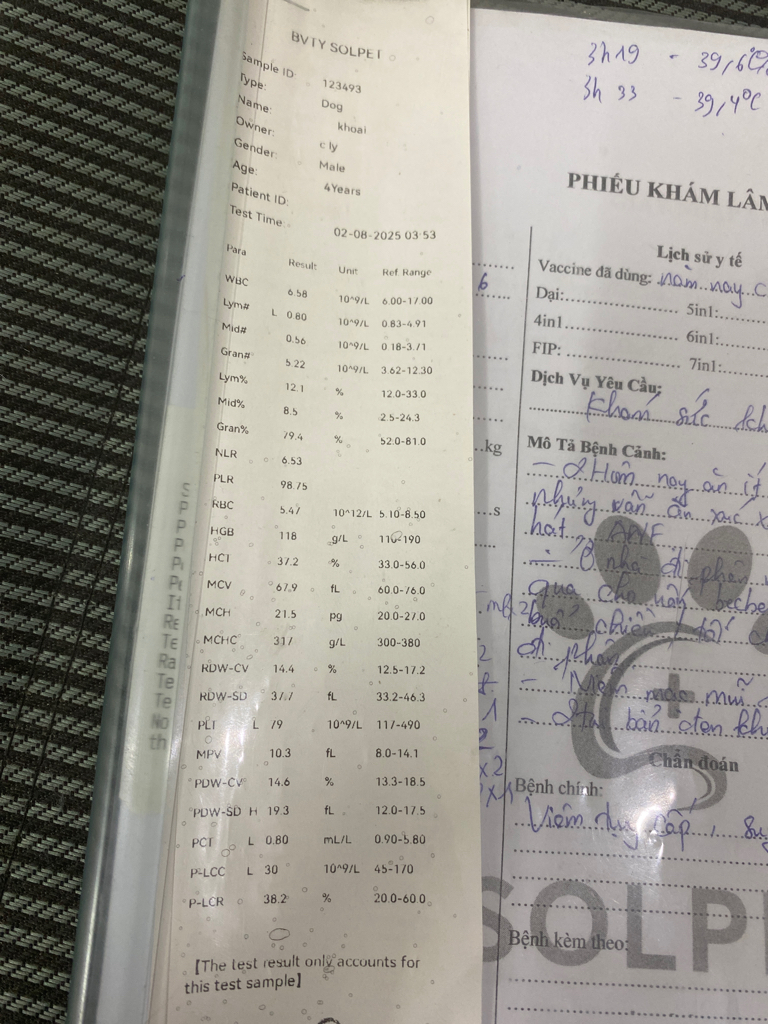 BVTY SOLPET
Sample ID: 123493
Type: Dog
Name: khoai
Owner: c ly
Gender: Male
Age: 4Years
Patient ID:
Test Time 02-08-2025 03:53
Para Result Unit Ref. Range
WBC 6.58 10^9/L 6.00-17.00
Lym# L 0.80 10^9/L 0.83-4.91
Mid# 0.56 10^9/L 0.18-3.71
Gran# 5.22 10^9/L 3.62-12.30
Lym% 12.1 % 12.0-33.0
Mid% 8.5 % 2.5-24.3
Gran% 79.4 % 52.0-81.0
NLR 6.53
PLR 98.75
RBC 5.47 10^12/L 5.10-8.50
HGB 118 g/L 110-190
HCT 37.2 % 33.0-56.0
MCV 67.9 fL 60.0-76.0
MCH 21.5 pg 20.0-27.0
MCHC 317 g/L 300-380
RDW-CV 14.4 % 12.5-17.2
RDW-SD 37.7 fL 33.2-46.3
PLT L 79 10^9/L 117-490
MPV 10.3 fL 8.0-14.1
PDW-CV 14.6 % 13.3-18.5
PDW-SD H 19.3 fL 12.0-17.5
PCT L 0.80 mL/L 0.90-5.80
P-LCC L 30 10^9/L 45-170
P-LCR 38.2 % 20.0-60.0
【The test result only accounts for
this test sample】
3h19 - 39,6°C
3h 33 - 39,4°C
PHIẾU KHÁM LÂM
Lịch sử y tế
Vaccine đã dùng: năm nay c
Dại: 5in1:
4in1 6in1:
FIP: 7in1:
Dịch Vụ Yêu Cầu:
Khám sức
kg
Mô Tả Bệnh Cảnh:
- 2 Hôm nay ăn ít
nhưng vẫn ăn xúc x
hạt, ANF
- Ở nhà đi phân
qua cho uống
chiều
đi phân
- Niêm mạc mũi
Chẩn đoán
Bệnh chính:
Viêm cấp,
Bệnh kèm theo:
SOLP